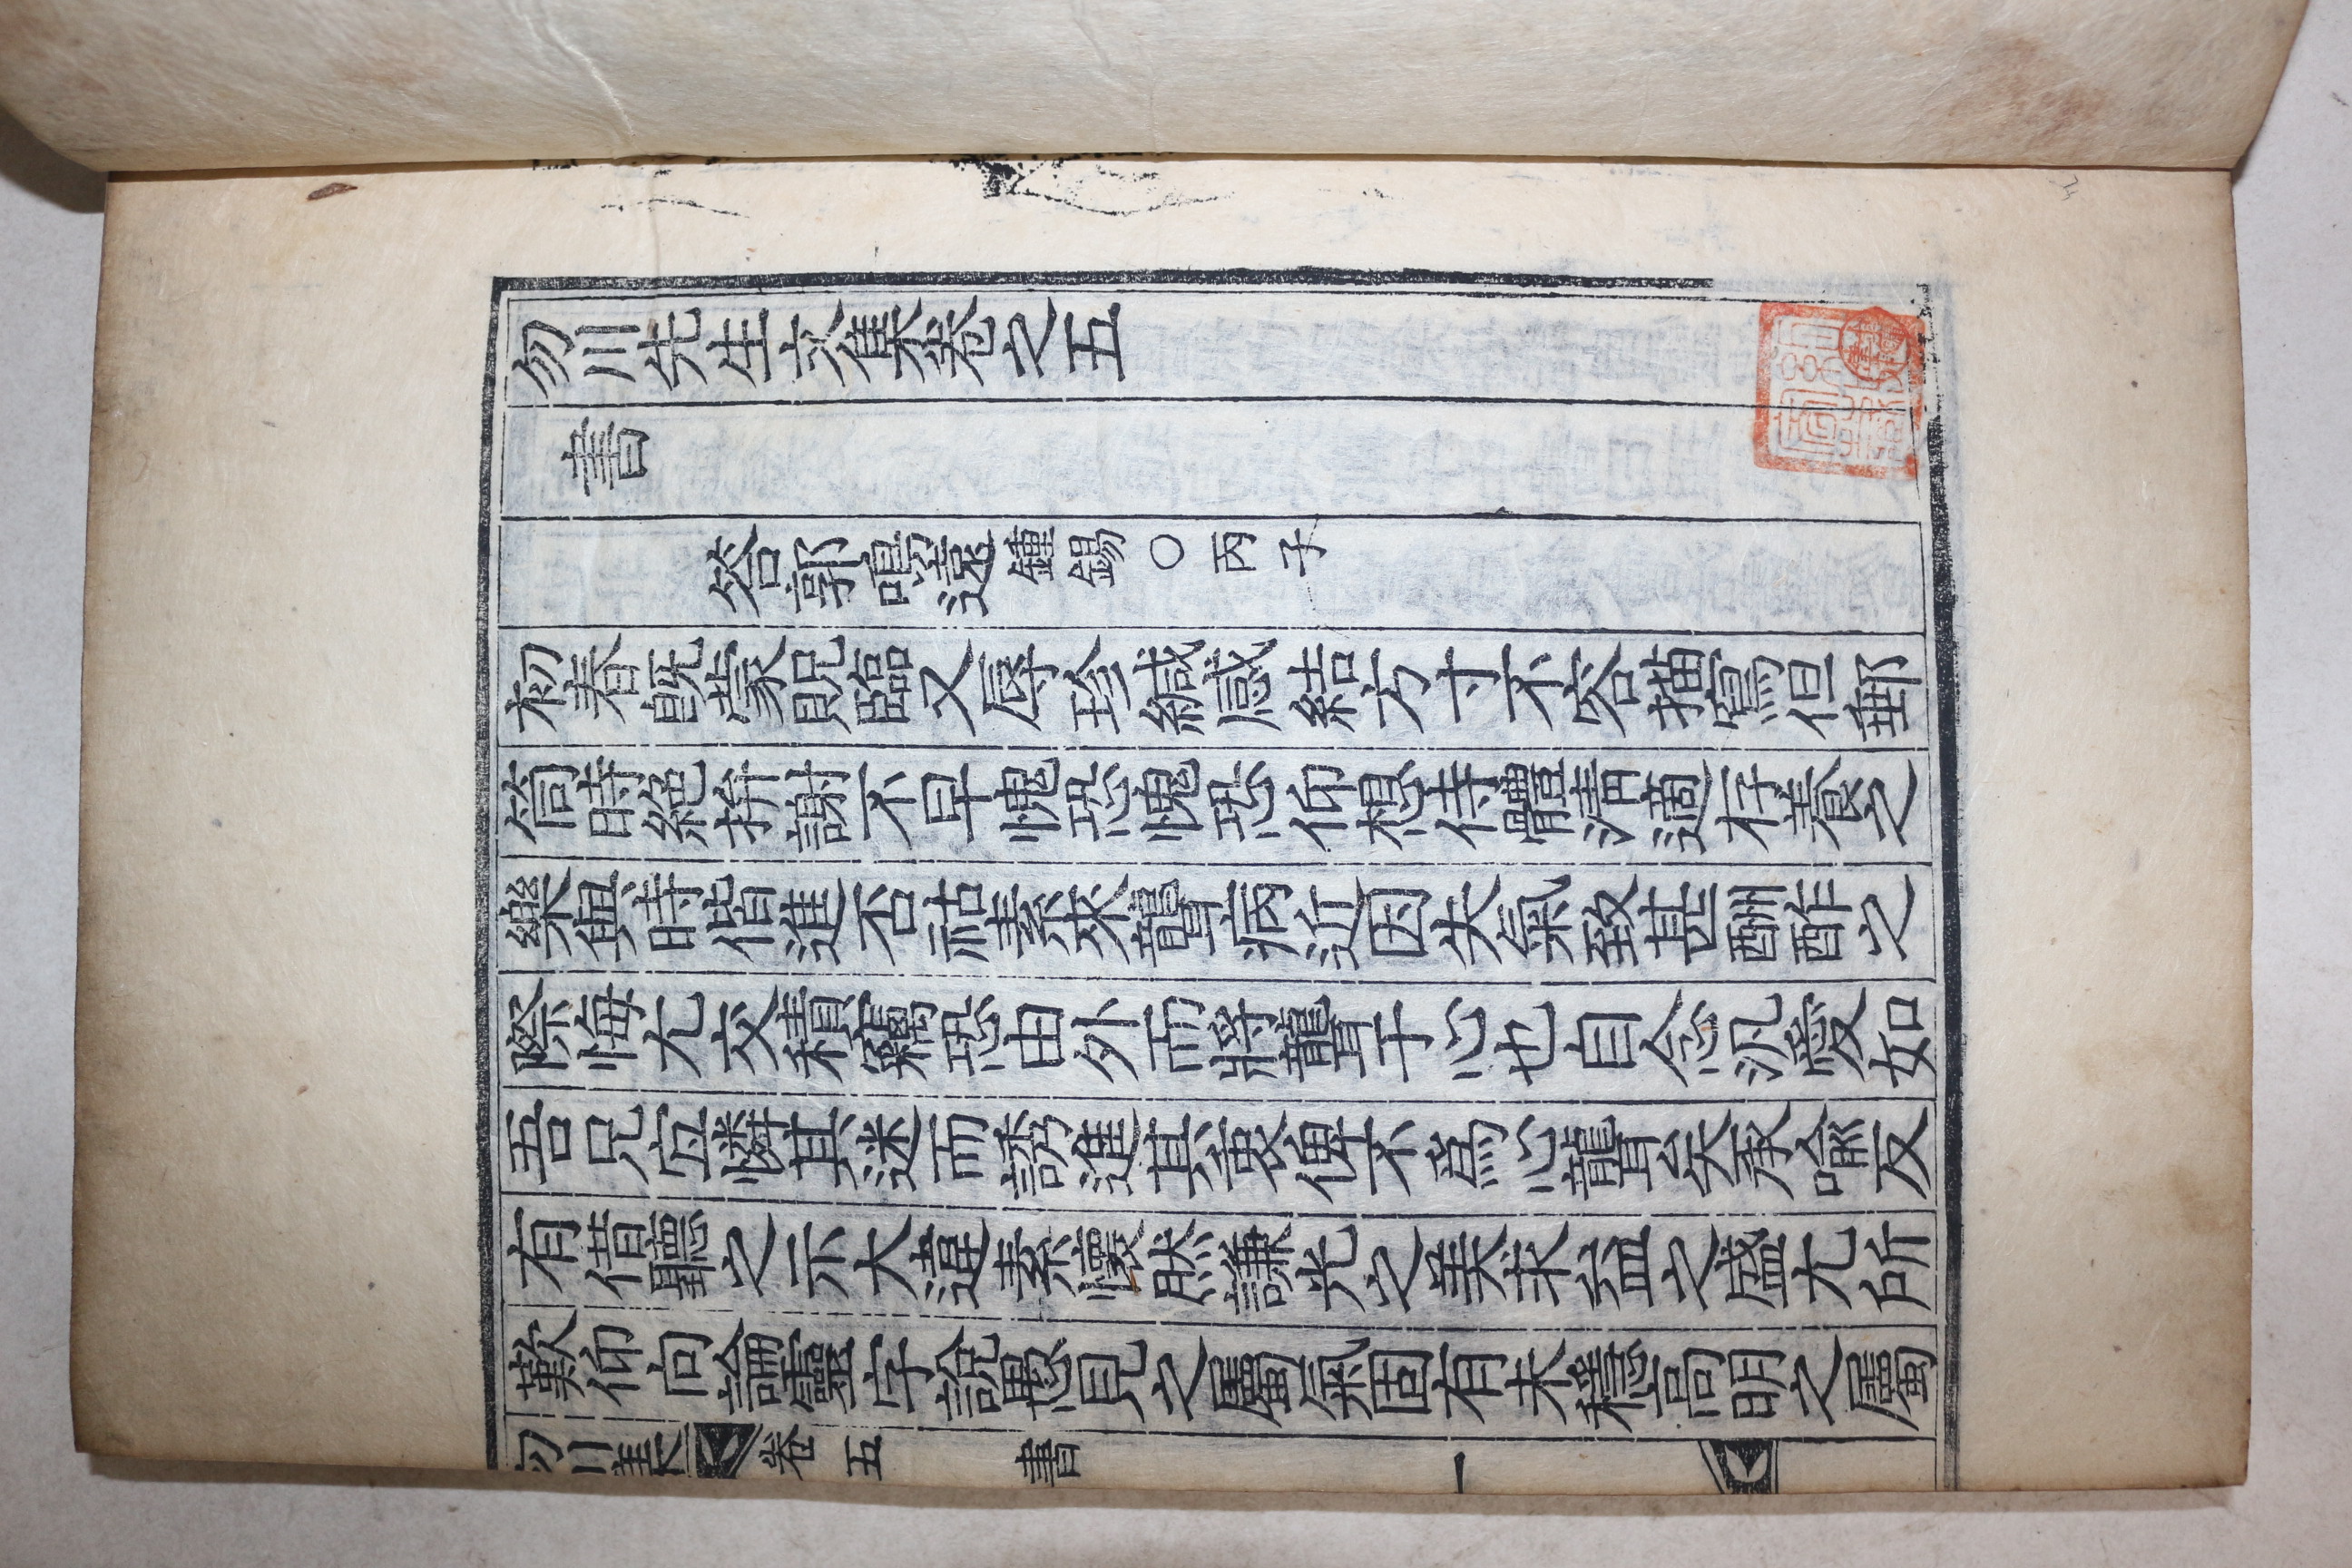 勿川先生文集卷之五
書
答郭鳴遠鍾錫○丙子
初春旣蒙貺臨又辱珍緘感結方寸不容描寫但郵
筒時絶拚謝不早愧恐愧恐仰想侍體淸適存養之
樂與時偕進否祜素來聾病近因失氣致甚酬酢之
際悔尤交積竊恐由外而將聾于心也自念汎愛如
吾兄宜憐其迷而誘進其衷俾不爲心聾矣承喩友
有借聽之示大違素懷然謙光之美求益之盛尤所
歎仰向論靈字說愚見之屬氣固有未穩高明之屬
勿川集 卷五 書 一